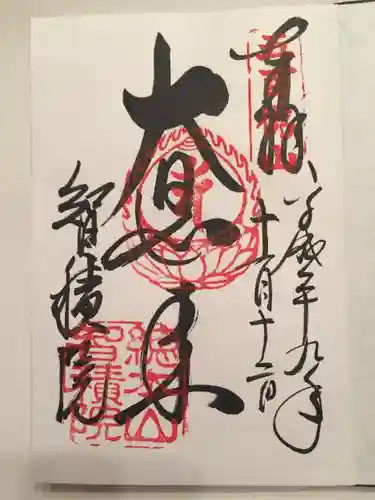 奉拝
平成廿九年
十一月十二日
大日如来
智積院
総本山
智積院